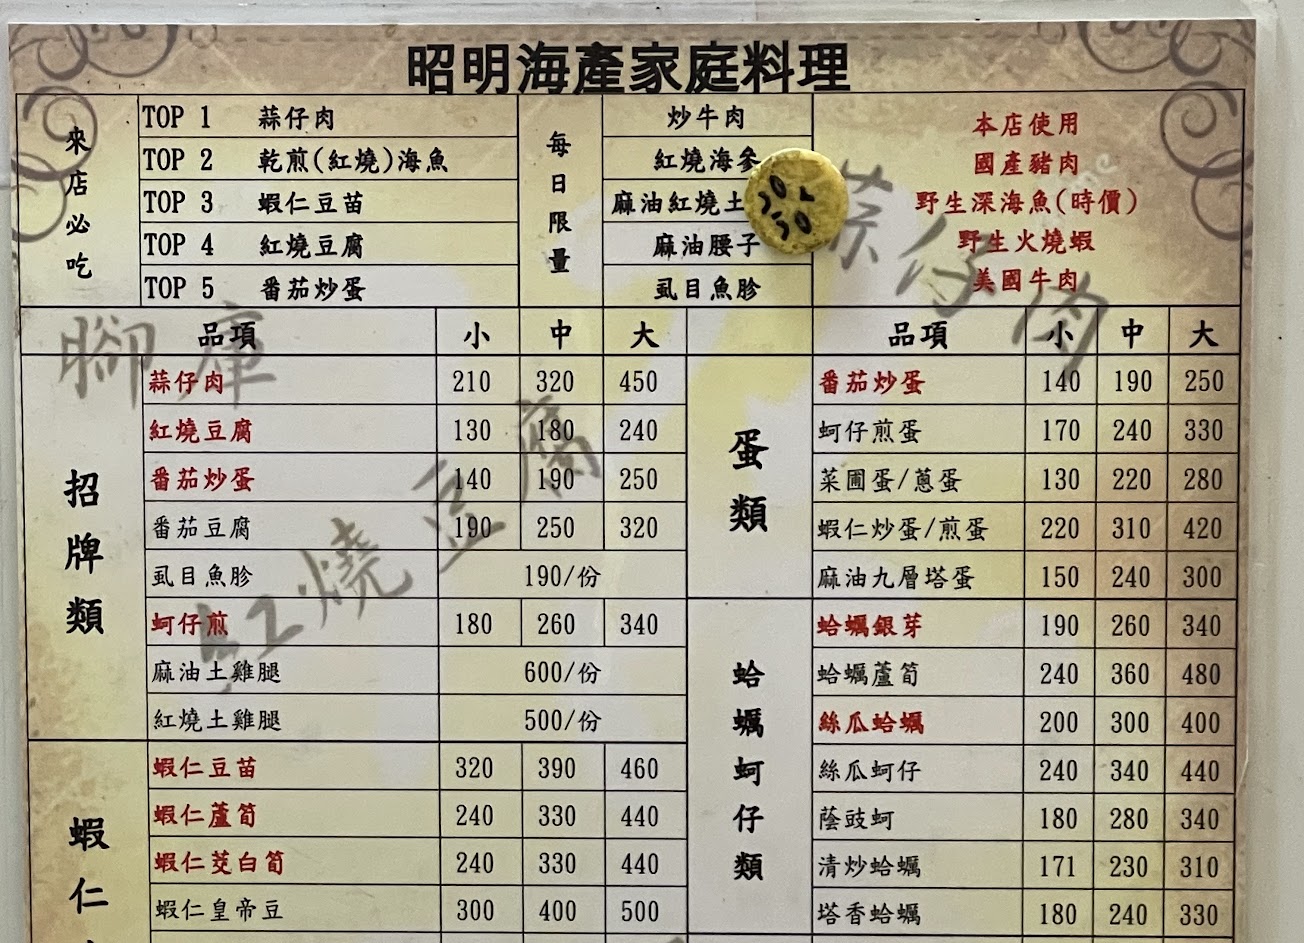 昭明海產家庭料理
來店必吃
TOP 1 蒜仔肉
TOP 2 乾煎(紅燒)海魚
TOP 3 蝦仁豆苗
TOP 4 紅燒豆腐
TOP 5 番茄炒蛋
每日限量
炒牛肉
紅燒海參
麻油紅燒土
麻油腰子
虱目魚胗
本店使用
國產豬肉
野生深海魚(時價)
野生火燒蝦
美國牛肉
蒜仔肉
腳庫
紅燒豆腐
品項 小 中 大
招牌類
蒜仔肉 210 320 450
紅燒豆腐 130 180 240
番茄炒蛋 140 190 250
番茄豆腐 190 250 320
虱目魚胗 190/份
蚵仔煎 180 260 340
麻油土雞腿 600/份
紅燒土雞腿 500/份
蝦仁
蝦仁豆苗 320 390 460
蝦仁蘆筍 240 330 440
蝦仁茭白筍 240 330 440
蝦仁皇帝豆 300 400 500
品項 小 中 大
蛋類
番茄炒蛋 140 190 250
蚵仔煎蛋 170 240 330
菜圃蛋/蔥蛋 130 220 280
蝦仁炒蛋/煎蛋 220 310 420
麻油九層塔蛋 150 240 300
蛤蠣蚵仔類
蛤蠣銀芽 190 260 340
蛤蠣蘆筍 240 360 480
絲瓜蛤蠣 200 300 400
絲瓜蚵仔 240 340 440
蔭豉蚵 180 280 340
清炒蛤蠣 171 230 310
塔香蛤蠣 180 240 330